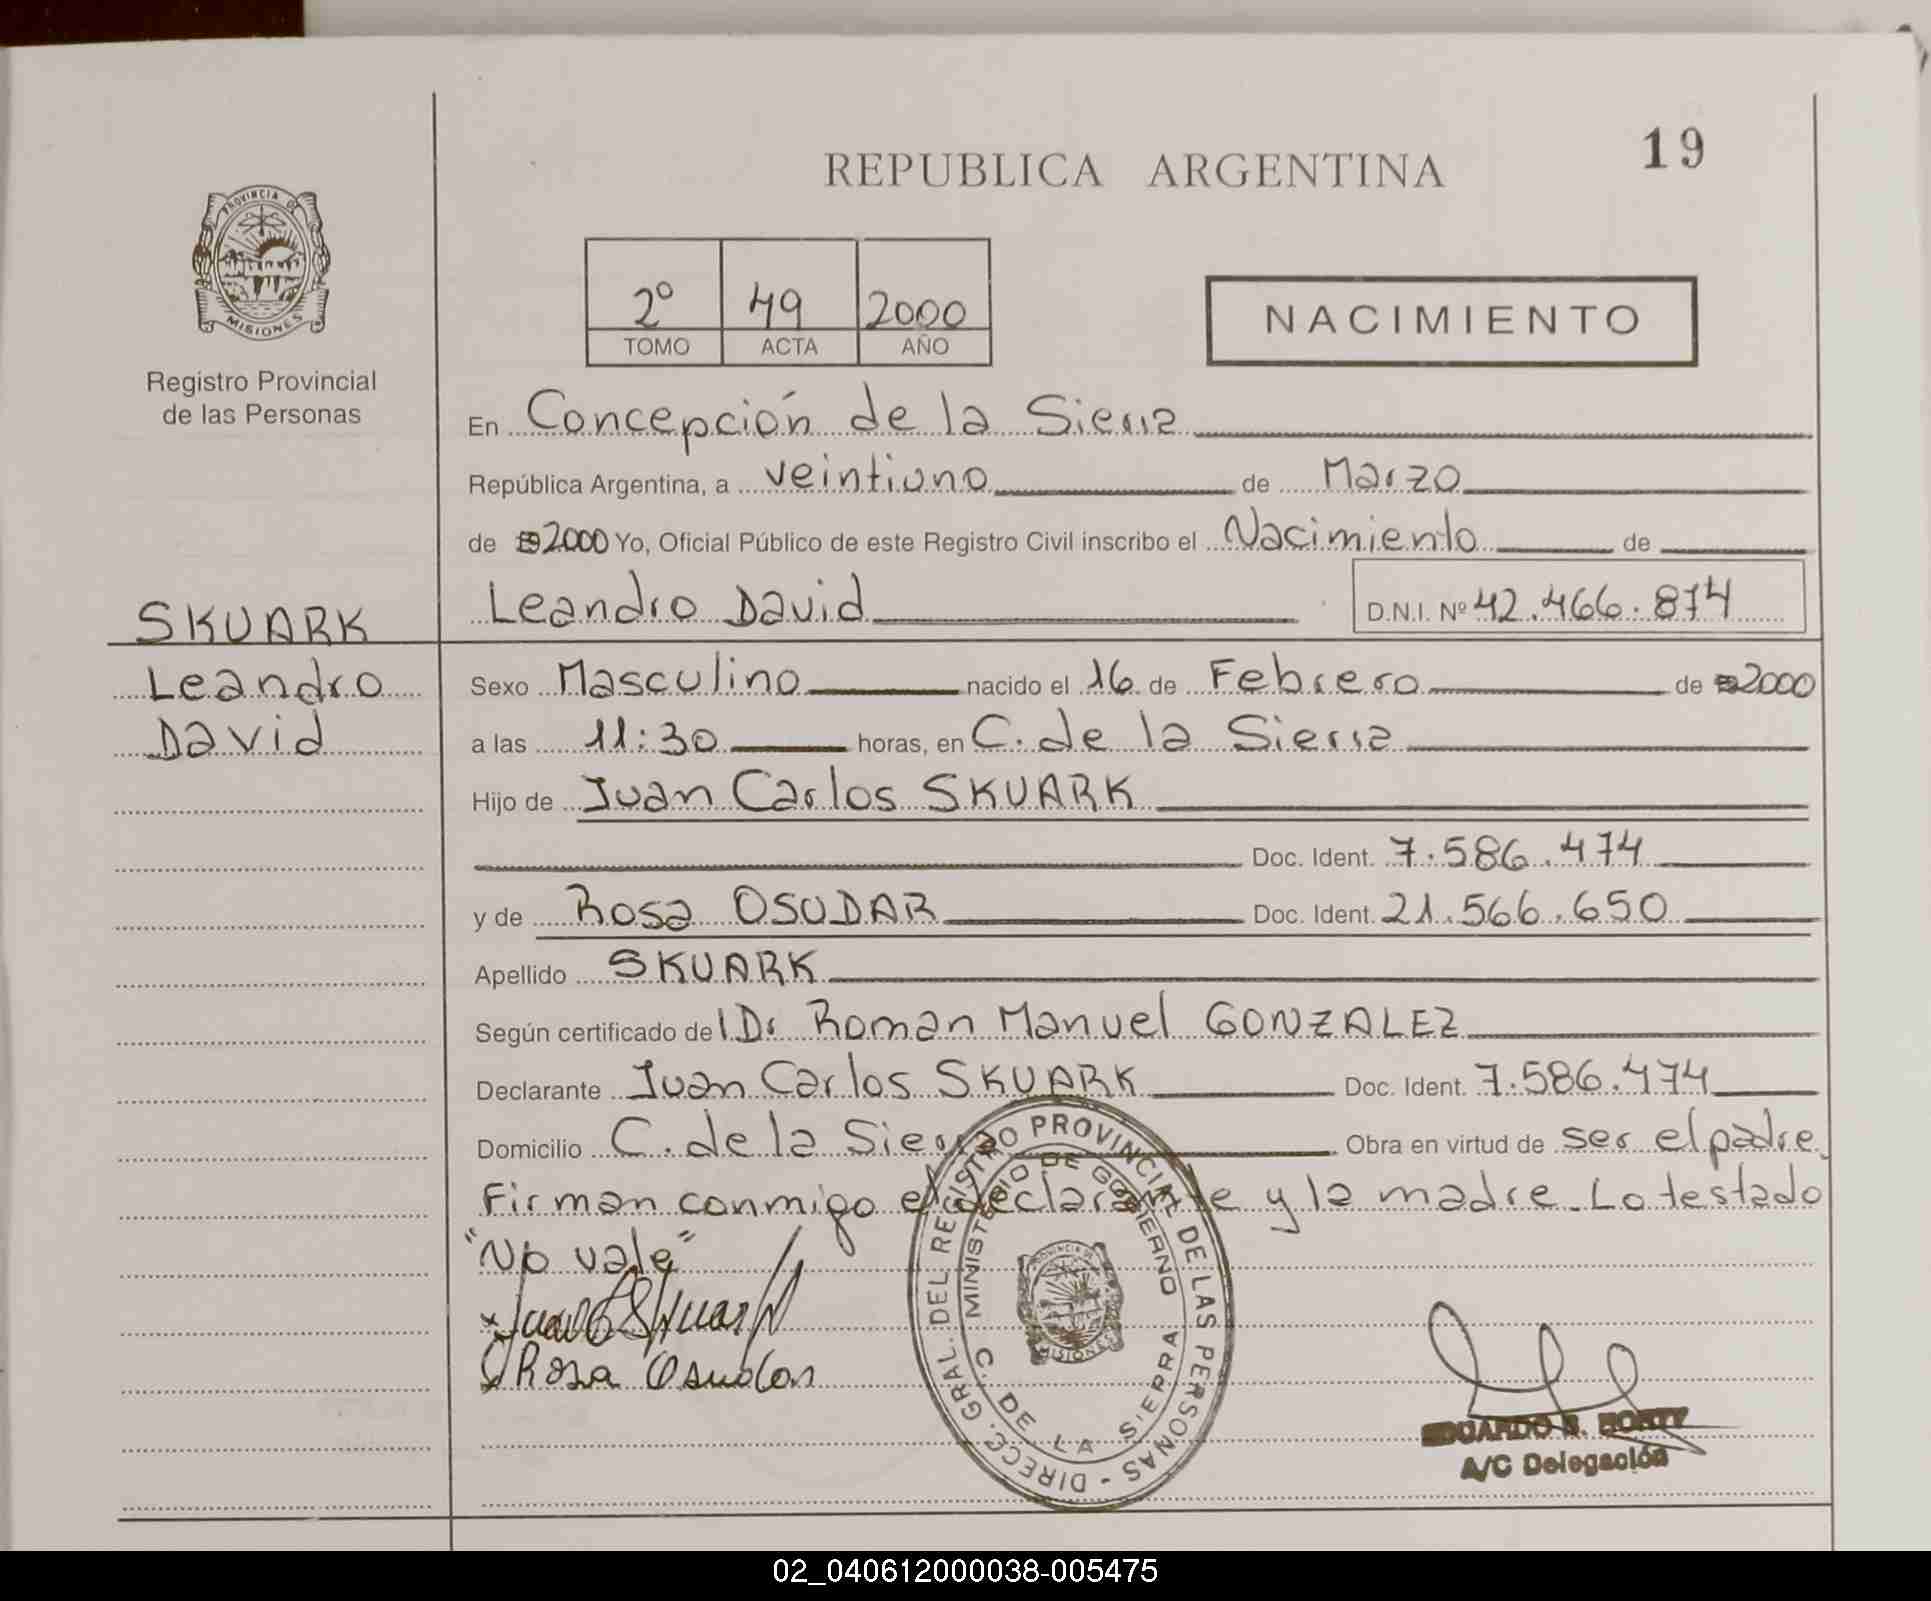 REPUBLICA ARGENTINA
19
PROVINCIA DE
MISIONES
Registro Provincial
de las Personas
2º 49 2000
TOMO ACTA AÑO
NACIMIENTO
En Concepción de la Sierra
República Argentina, a veintiuno de Marzo
de 19 2000 Yo, Oficial Público de este Registro Civil inscribo el Nacimiento de
Leandro David D.N.I. Nº 42.466.874
SKUARK
Leandro
David
Sexo Masculino nacido el 16 de Febrero de 2000
a las 11:30 horas, en C. de la Sierra
Hijo de Juan Carlos SKUARK
Doc. Ident. 7.586.474
y de Rosa OSUDAR Doc. Ident. 21.566.650
Apellido SKUARK
Según certificado de l Dr Roman Manuel GONZALEZ
Declarante Juan Carlos SKUARK Doc. Ident. 7.586.474
Domicilio C. de la Sierra Obra en virtud de ser el padre
Firman conmigo el declarante y la madre. Lo testado
"No vale"
Juan C Skuark
Rosa Osudar
DIRECC. GRAL. DEL REGISTRO PROVINCIAL DE LAS PERSONAS -
MINISTERIO DE GOBIERNO
C. DE LA SIERRA
PROVINCIA DE
MISIONES
EDUARDO R. HORTY
A/C Delegación
02_040612000038-005475